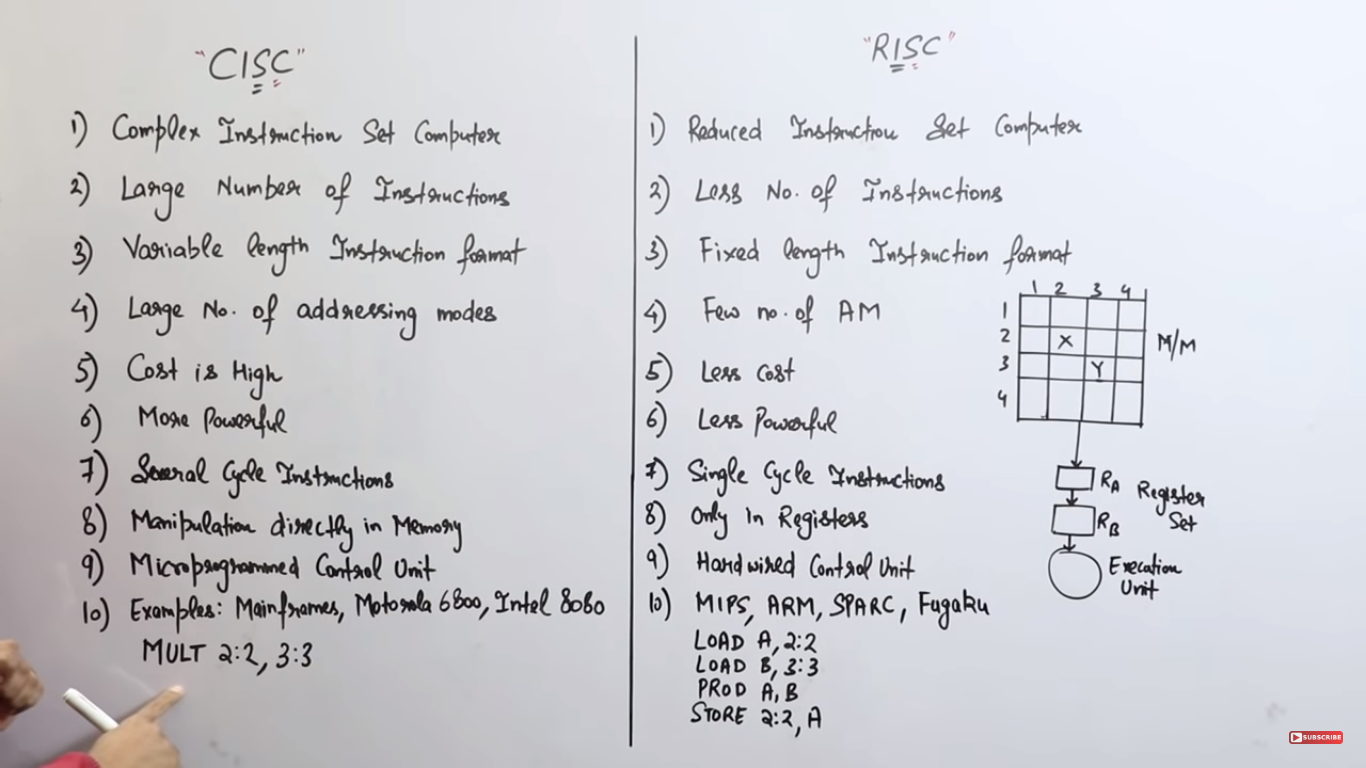 "CISC"
1) Complex Instruction Set Computer
2) Large Number of Instructions
3) Variable length Instruction format
4) Large No. of addressing modes
5) Cost is High
6) More Powerful
7) Several Cycle Instructions
8) Manipulation directly in Memory
9) Microprogrammed Control Unit
10) Examples: Mainframes, Motorola 6800, Intel 8080
MULT 2:2, 3:3
"RISC"
1) Reduced Instruction Set Computer
2) Less No. of Instructions
3) Fixed length Instruction format
4) Few no. of AM
5) Less Cost
6) Less Powerful
7) Single Cycle Instructions
8) Only in Registers
9) Hardwired Control Unit
10) MIPS, ARM, SPARC, Fugaku
LOAD A, 2:2
LOAD B, 3:3
PROD A, B
STORE 2:2, A
1 2 3 4
1
2 X
3 Y
4
M/M
RA
Register
Set
RB
Execution
Unit
SUBSCRIBE